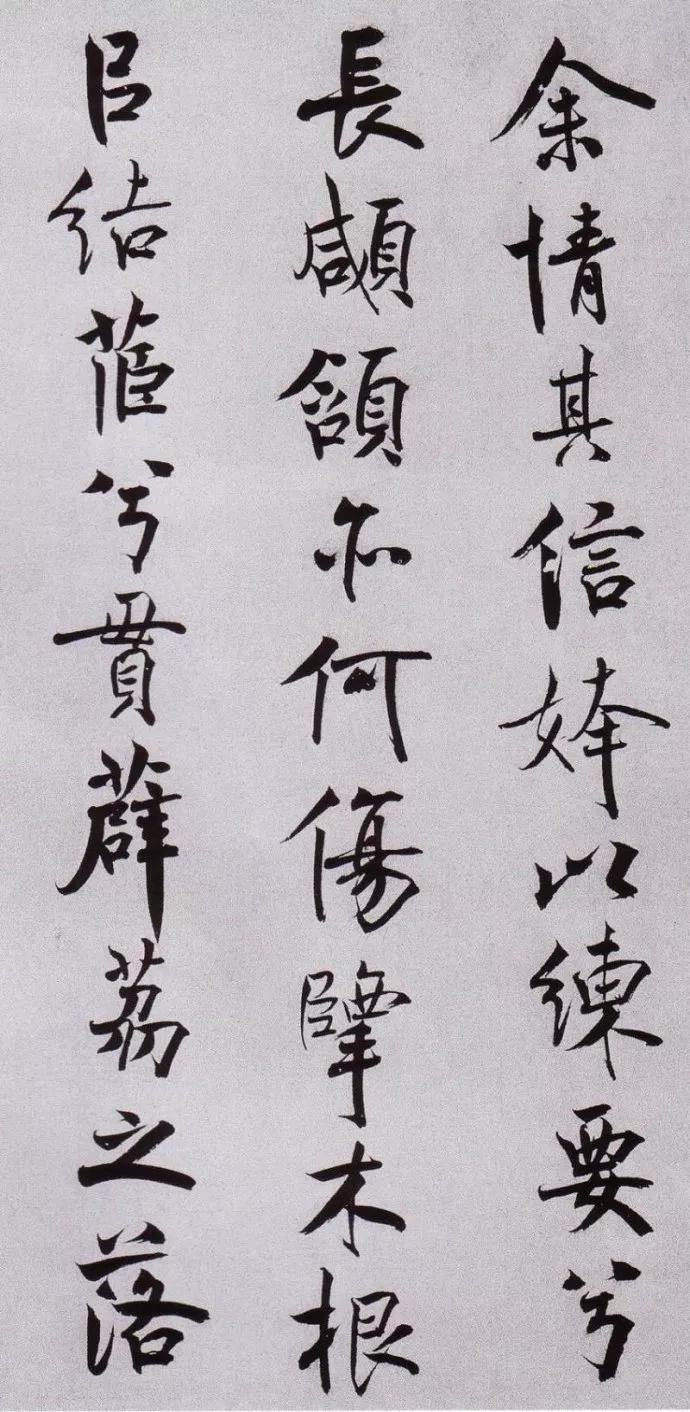 余情其信姱以練要兮
長顑頷亦何傷擥木根
㠯結茝兮貫薜荔之落